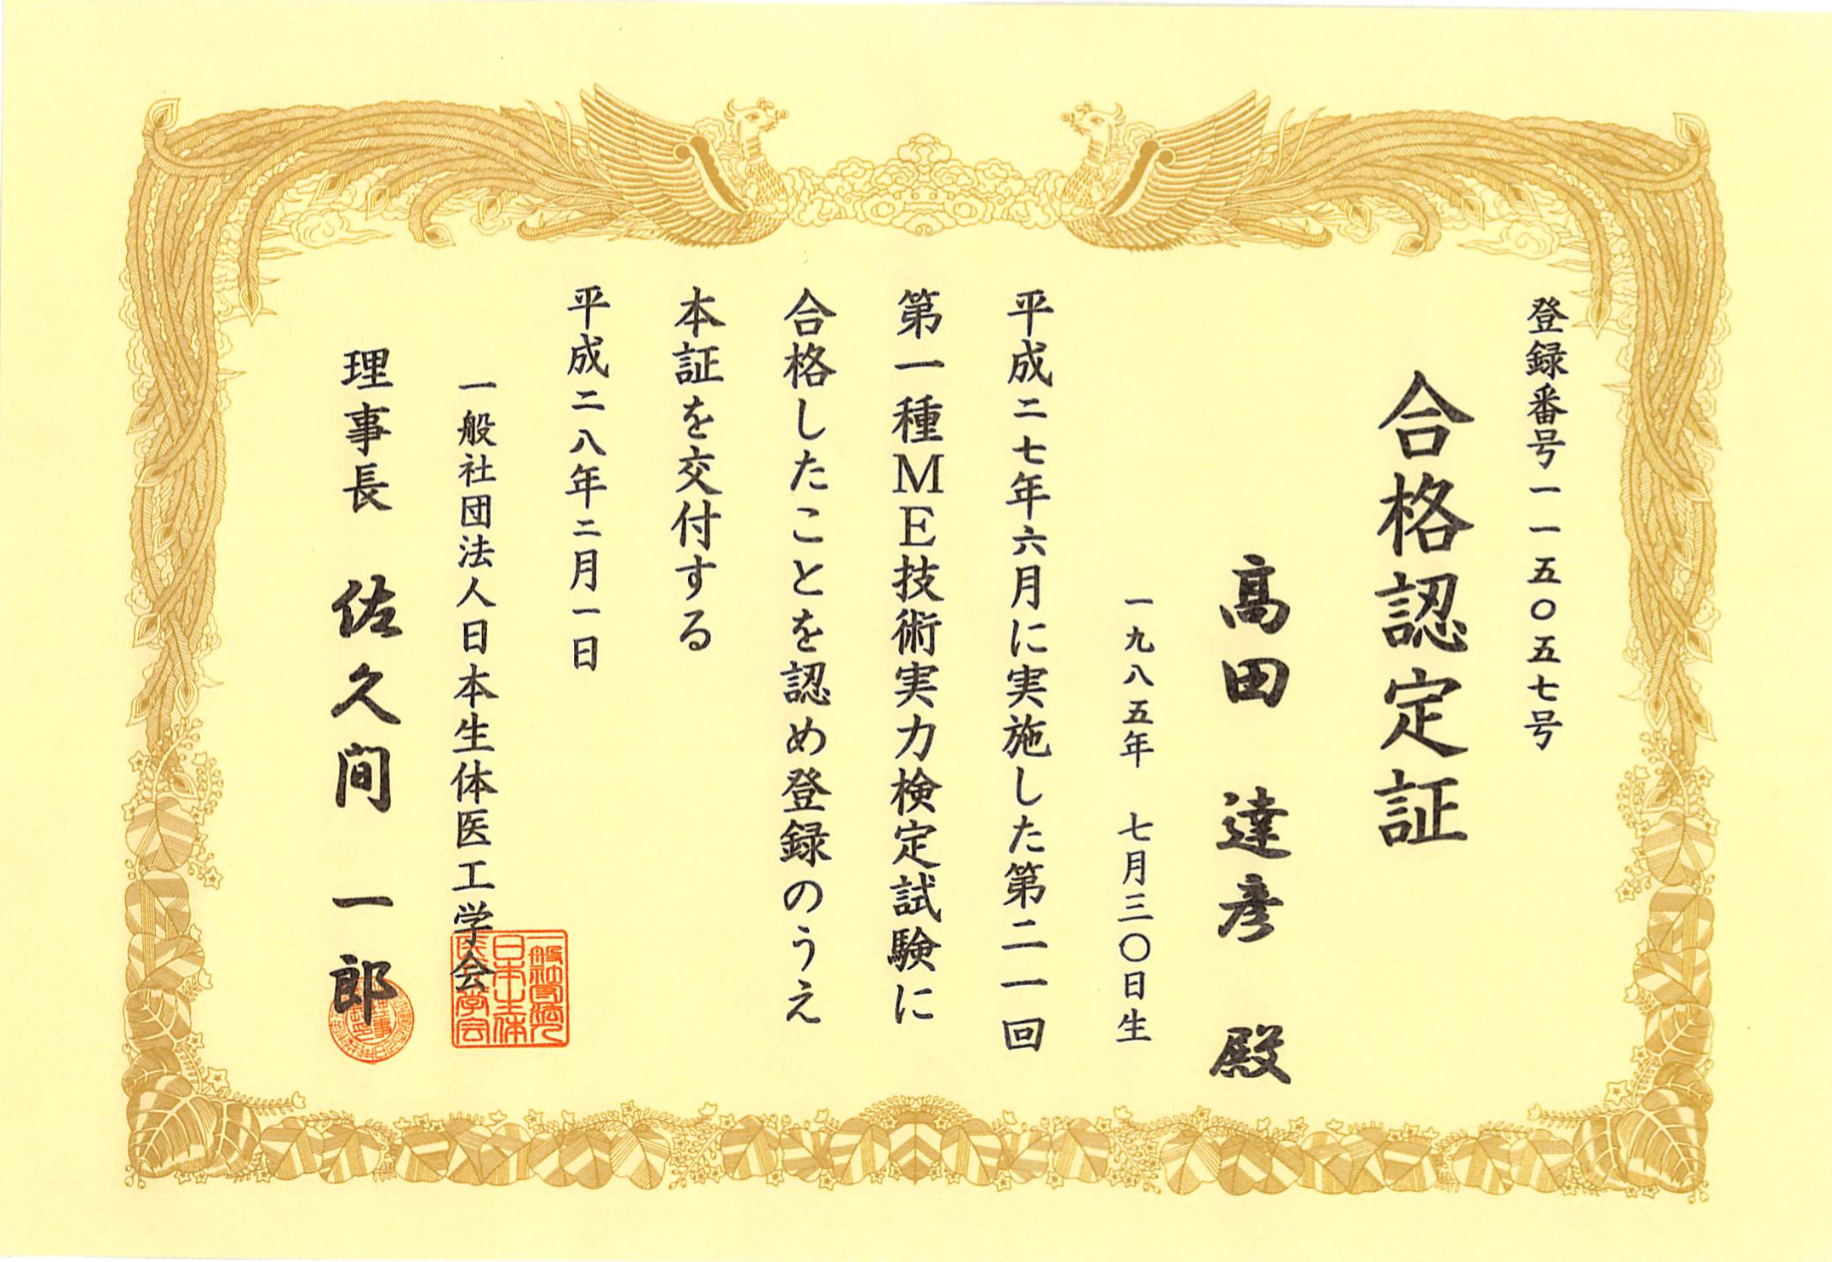 登録番号一一五〇五七号
合格認定証
髙田 達彦 殿
一九八五年 七月三〇日生
平成二七年六月に実施した第二一回
第一種ME技術実力検定試験に
合格したことを認め登録のうえ
本証を交付する
平成二八年二月一日
一般社団法人日本生体医工学会
理事長 佐久間 一郎